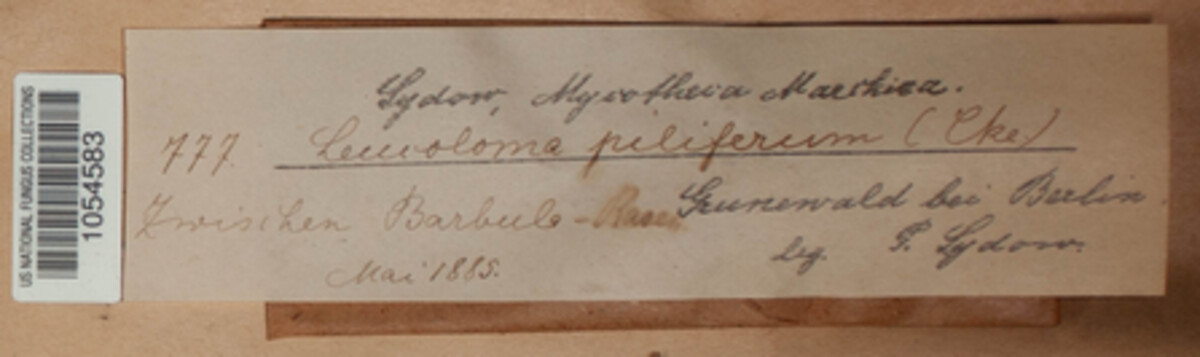 US NATIONAL FUNGUS COLLECTIONS
1054583
Sydow, Mycotheca Marchica.
777. Leucoloma piliferum (Cke)
Zwischen Barbula-Rasen Grunewald bei Berlin
Mai 1885. leg. P. Sydow.